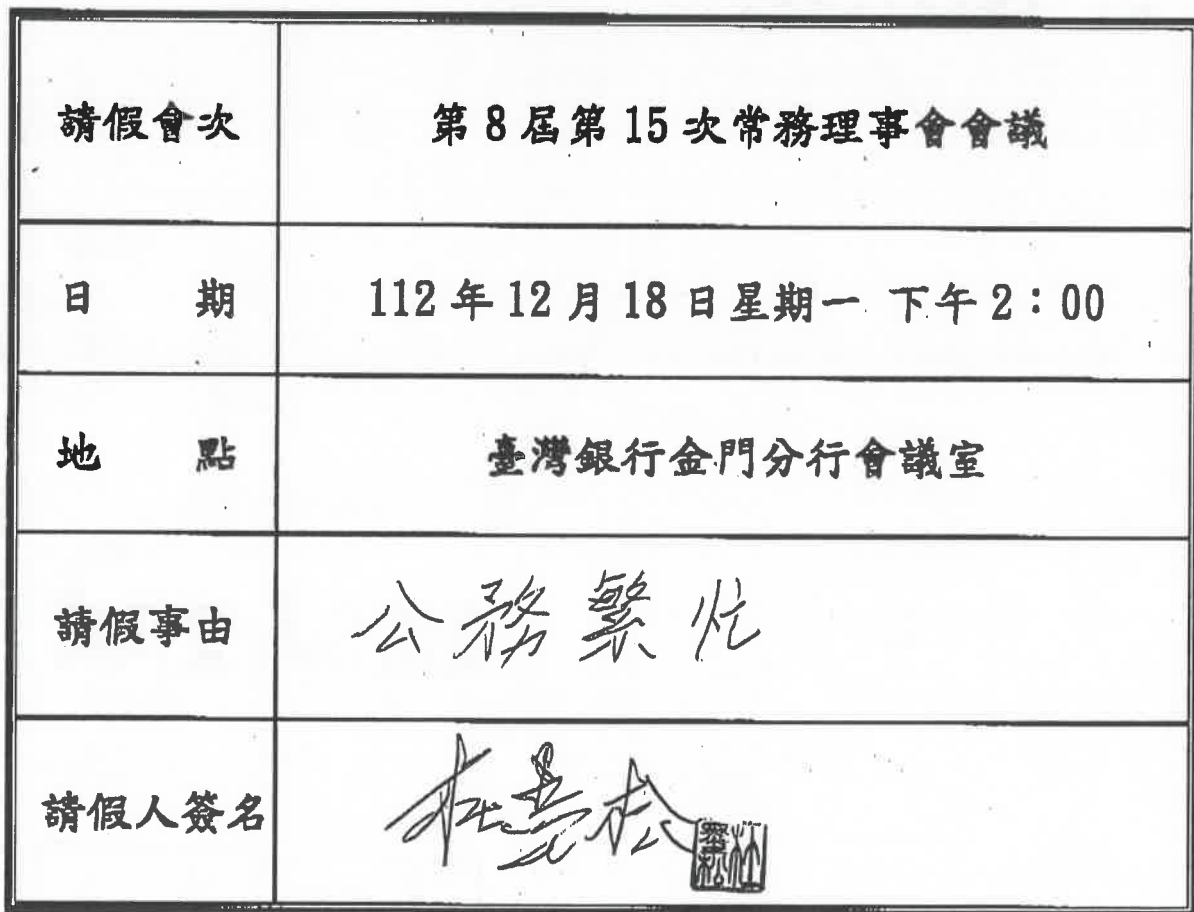 請假會次 第8屆第15次常務理事會會議
日期 112年12月18日星期一 下午2:00
地點 臺灣銀行金門分行會議室
請假事由 公務繁忙
請假人簽名